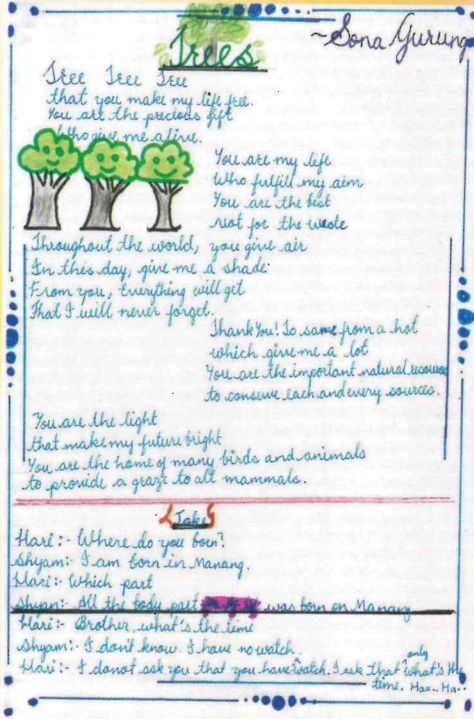 Trees
~Sona Gurung
Tree Tree Tree
that you make my life free.
You are the precious gift
Who give me alive.
You are my life
Who fulfill my aim
You are the best
not for the waste
Throughout the world, you give air
In this day, give me a shade
From you, everything will get
That I will never forget.
Thank You! To same from a hot
which give me a lot
You are the important natural resources
to conserve each and every sources.
You are the light
that make my future bright
You are the home of many birds and animals
to provide a graze to all mammals.
Joke
Hari:- Where do you born?
Shyam:- I am born in Manang.
Hari:- Which part
Shyam:- All the body part was born on Manang
Hari:- Brother, what's the time
Shyam:- I don't know. I have no watch.
Hari:- I donot ask you that you have watch. I ask that only what's the
time. Haa.. Ha..